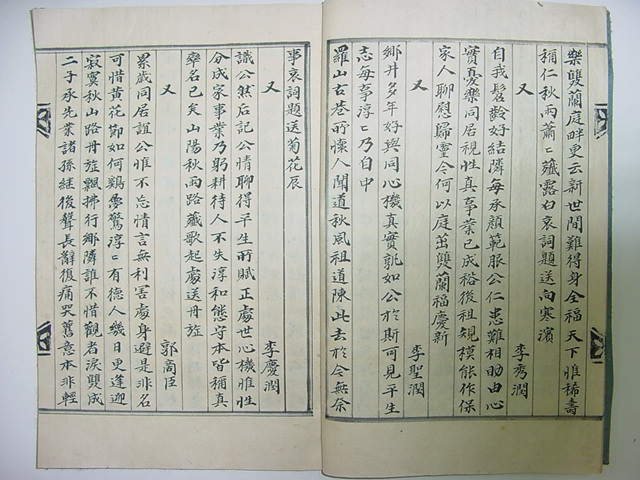 樂雙蘭庭畔更云新世間難得身全福天下惟稀壽
稱仁秋雨蕭〻薤露白哀詞題送向寒濱
李秀潤
自我髫齡好結隣每承顔範服公仁患難相助由心
實憂樂同居視性真事業已成裕後祖規模能作保
家人聊慰歸靈今何以庭茁雙蘭福慶新
又
李聖潤
鄉井多年好與同心機真實孰如公於斯可見平生
志每事淳〻乃自中
羅山古巷所懷人聞道秋風祖道陳此去於今無余
事哀詞題送菊花辰
又
李慶潤
識公然后記公情聊得平生所賦正處世心機惟性
分成家事業乃躬耕待人不失淳和態守本皆稱真
率名已矣山陽秋雨路薤歌起處送丹旌
又
郭尚臣
累歲同居誼公惟不忘情言無利害處身避是非名
可惜黃花節如何鷄夢驚淳〻有德人幾日更逢迎
寂寞秋山路丹旌飄拂行鄉隣誰不惜觀者淚雙成
二子承先業諸孫継後聲長辭復痛哭舊意本非輕